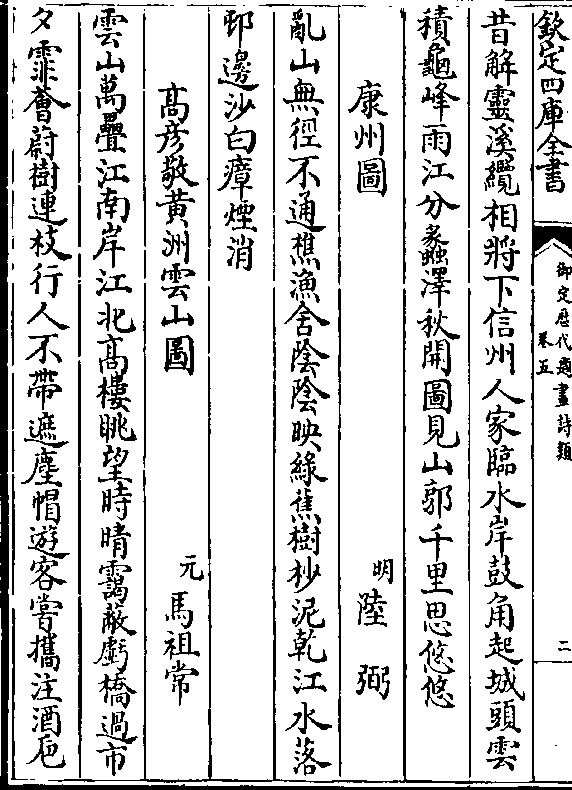 欽定四庫全書
御定歷代題畫詩類
卷五
二
昔解靈溪纜相將下信州人家臨水岸鼓角起城頭雲
積龜峰雨江分蠡澤秋開圖見山郭千里思悠悠
康州圖
明陸弼
亂山無徑不通樵漁舍陰陰映綠蕉樹杪泥乾江水落
邨邊沙白瘴煙消
高彦敬黄洲雲山圖
元馬祖常
雲山萬疊江南岸江北高樓眺望時晴靄蔽虧橋過市
夕霏薈蔚樹連枝行人不帶遮塵帽遊客嘗攜注酒巵